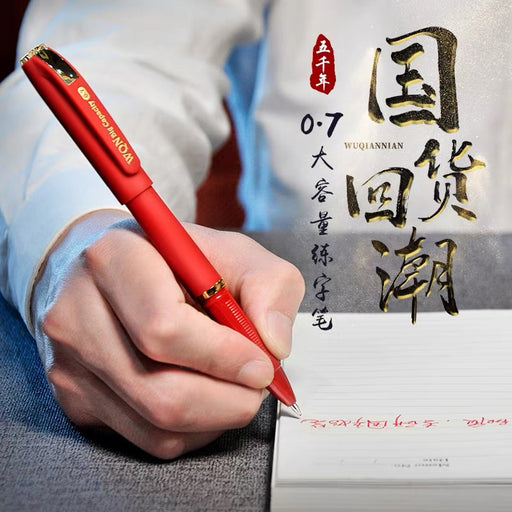 五千年
国货回潮
WUQIANNIAN
0.7
大容量练字笔
WQN Big Capacity 0.7